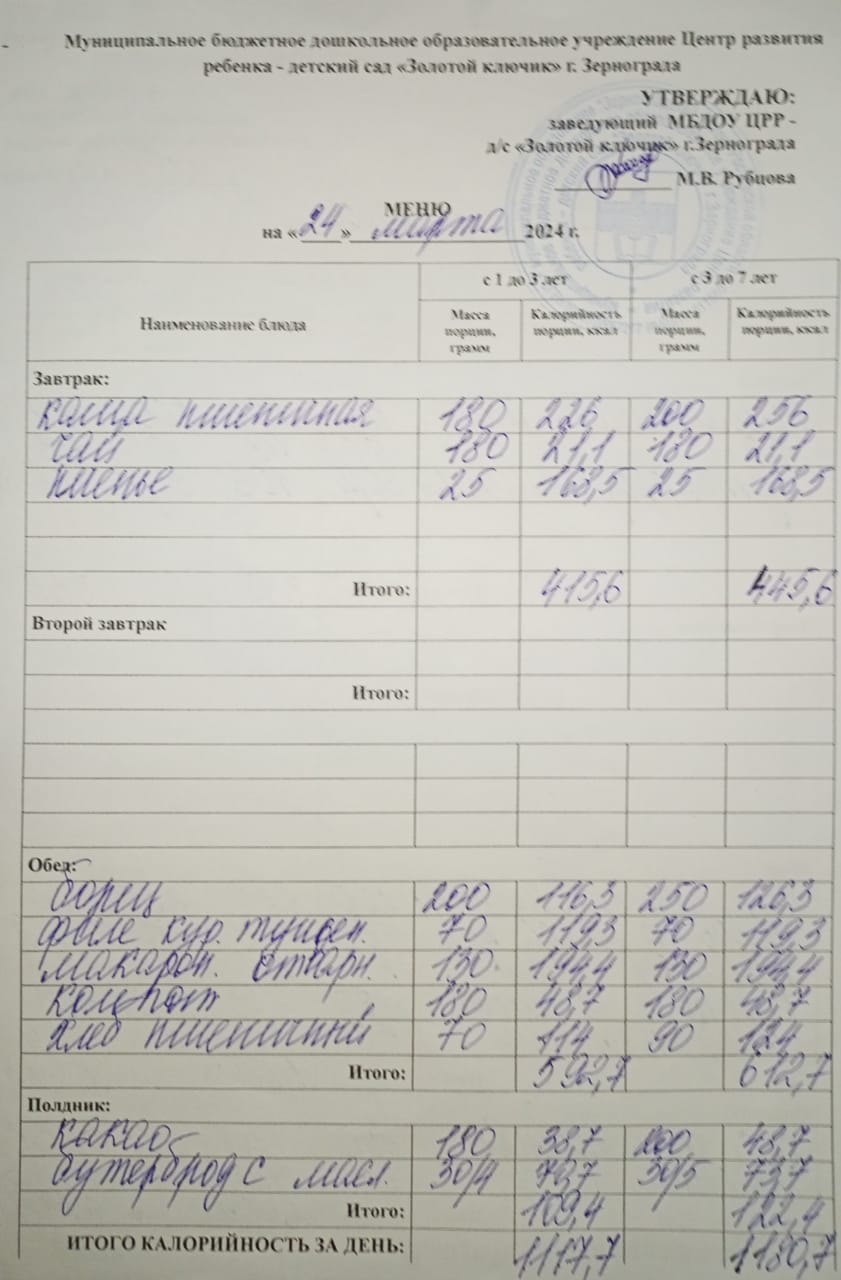 Муниципальное бюджетное дошкольное образовательное учреждение Центр развития
ребенка - детский сад «Золотой ключик» г. Зернограда
УТВЕРЖДАЮ:
заведующий МБДОУ ЦРР -
д/с «Золотой ключик» г.Зернограда
М.В. Рубцова
МЕНЮ
на «24» марта 2024 г.
Наименование блюда с 1 до 3 лет с 3 до 7 лет
Масса порции, грамм Калорийность порции, ккал Масса порции, грамм Калорийность порции, ккал
Завтрак:
каша пшеничная 180 226 200 256
чай 180 21,1 180 21,1
печенье 25 168,5 25 168,5
Итого: 415,6 445,6
Второй завтрак
Итого:
Обед:
борщ 200 116,3 250 126,3
филе кур. тушен. 70 119,3 70 119,3
макарон. отварн. 130 194,4 130 194,4
компот 180 48,7 180 48,7
хлеб пшеничный 70 114 90 124
Итого: 592,7 612,7
Полдник:
какао 180 38,7 200 48,7
бутерброд с масл. 30/4 70,7 30/5 73,7
Итого: 109,4 122,4
ИТОГО КАЛОРИЙНОСТЬ ЗА ДЕНЬ: 1117,7 1180,7